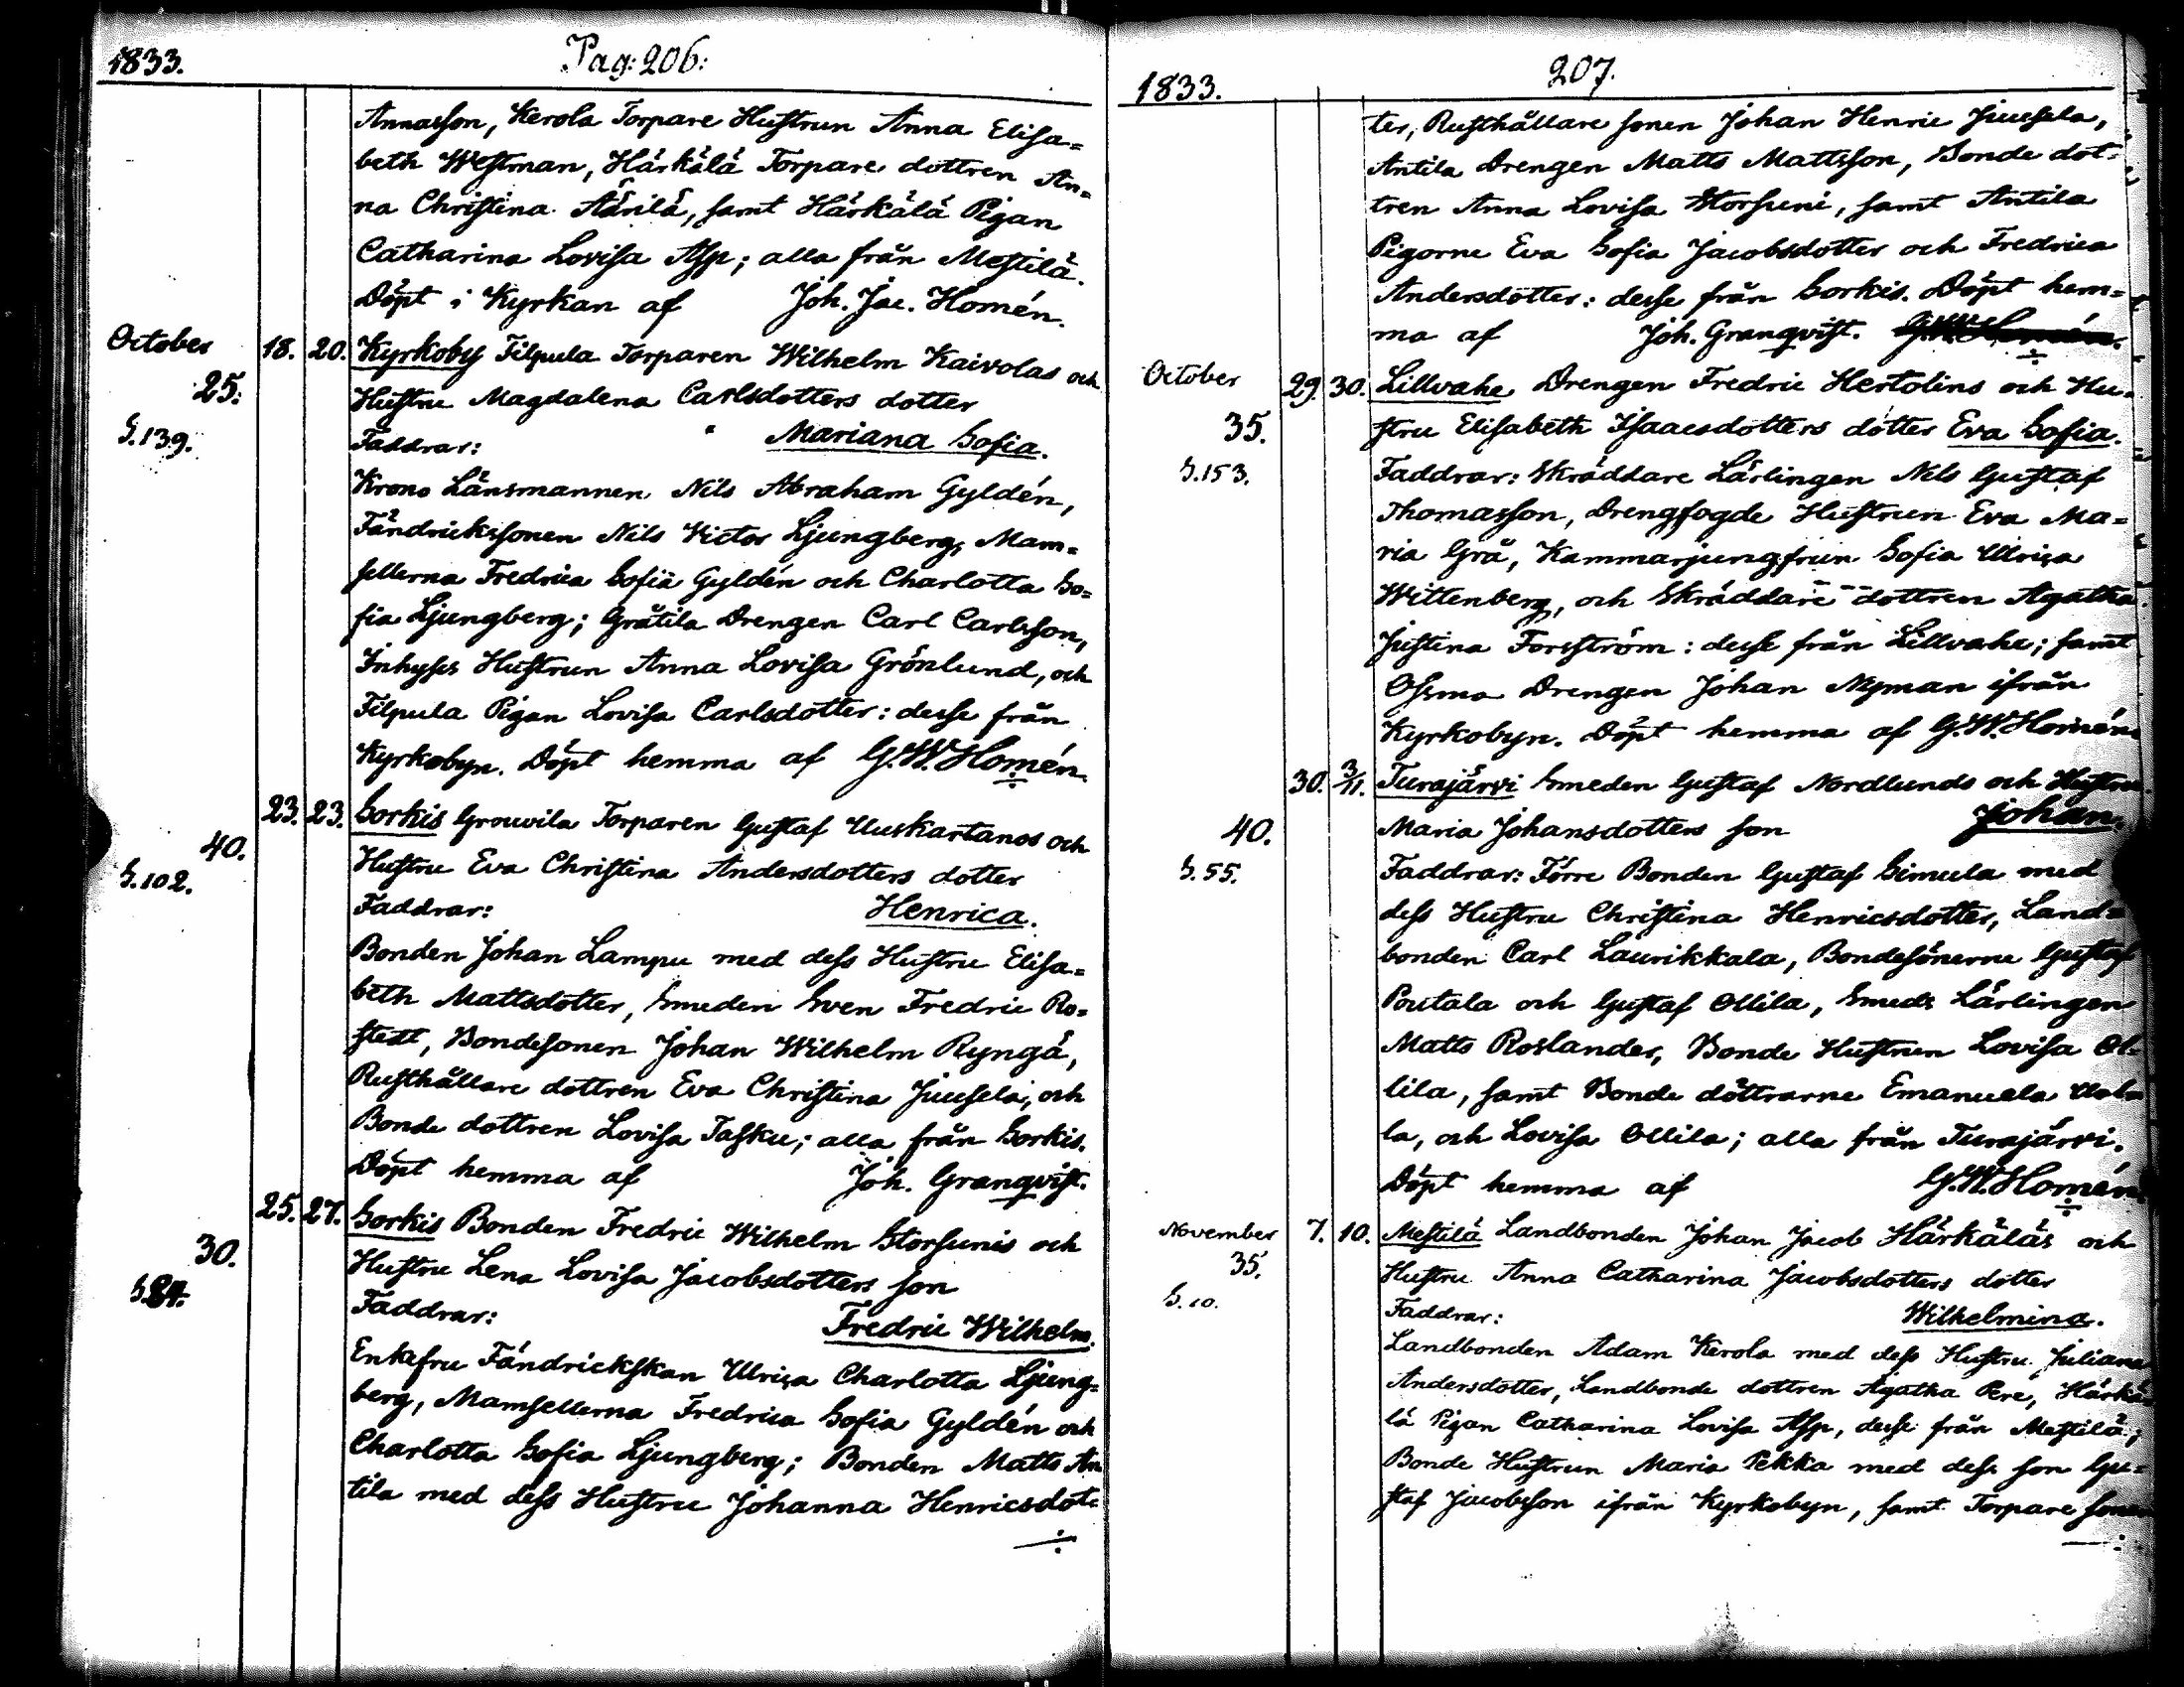 1833.
Pag: 206:
Annasson, Kerola Torpare Hustrun Anna Elisa=
beth Westman, Härkälä Torpare dottren An=
na Christina Äärilä, samt Härkälä Pigan
Catharina Lovisa Asp; alla från Mestilä.
Döpt i Kyrkan af Joh. Jac. Homén.
October 18. 20. Kyrkoby Filpula Torparen Wilhelm Kaivolas och
25. Hustru Magdalena Carlsdotters dotter
S. 139. Faddrar: Mariana Sofia.
Krono Länsmannen Nils Abraham Gyldén,
Fändrickssonen Nils Victor Ljungberg, Mam=
sellerna Fredrica Sofia Gyldén och Charlotta So=
fia Ljungberg; Gråtila Drengen Carl Carlsson,
Inhyses Hustrun Anna Lovisa Grönlund, och
Filpula Pigan Lovisa Carlsdotter: desse från
Kyrkobyn. Döpt hemma af G. W. Homén.
23. 23. Sorkis Grouvila Torparen Gustaf Uuskartanos och
40. Hustru Eva Christina Andersdotters dotter
S. 102. Faddrar: Henrica.
Bonden Johan Lampu med dess Hustru Elisa=
beth Mattsdotter, Smeden Sven Fredric Ro=
stedt, Bondesonen Johan Wilhelm Ryngä,
Rusthållare dottren Eva Christina Juusela, och
Bonde dottren Lovisa Tasku; alla från Sorkis.
Döpt hemma af Joh. Granqvist.
25. 27. Sorkis Bonden Fredric Wilhelm Storsunis och
30. Hustru Lena Lovisa Jacobsdotters son
S. 84. Faddrar: Fredric Wilhelm.
Enkefru Fändrickskan Ulrica Charlotta Ljung=
berg, Mamsellerna Fredrica Sofia Gyldén och
Charlotta Sofia Ljungberg; Bonden Matts An
tila med dess Hustru Johanna Henricsdot=
1833.
207.
ter, Rusthållare sonen Johan Henric Juusela,
Antila Drengen Matts Mattsson, Bonde dot=
tren Anna Lovisa Storsuni, samt Antila
Pigorne Eva Sofia Jacobsdotter och Fredrica
Andersdotter: desse från Sorkis. Döpt hem=
ma af Joh. Granqvist.
October 29. 30. Lillvahe Drengen Fredric Hertolins och Hu=
35. stru Elisabeth Isaacsdotters dotter Eva Sofia.
S. 153. Faddrar: Skräddare Lärlingen Nils Gustaf
Thomasson, Drengfogde Hustrun Eva Ma=
ria Grå, Kammarjungfrun Sofia Ulrica
Wittenberg, och Skräddare dottren Agatha
Justina Forsström: desse från Lillvahe; samt
Ossma Drengen Johan Nyman ifrån
Kyrkobyn. Döpt hemma af G. W. Homén
30. 3/11. Turajärvi Smeden Gustaf Nordlunds och Hustru
40. Maria Johansdotters son Johan.
S. 55. Faddrar: Förre Bonden Gustaf Simula med
dess Hustru Christina Henricsdotter, Land=
bonden Carl Laurikkala, Bondesönerne Gustaf
Poutala och Gustaf Ollila, Smeds Lärlingen
Matts Roslander, Bonde Hustrun Lovisa Ol=
lila, samt Bonde döttrarne Emanuela
la, och Lovisa Ollila; alla från Turajärvi.
Döpt hemma af G. W. Homén.
November 7. 10. Mestilä Landbonden Johan Jacob Härkäläs och
35. Hustru Anna Catharina Jacobsdotters dotter
S. 10. Faddrar: Wilhelmina.
Landbonden Adam Kerola med dess Hustru Juliana
Andersdotter, Landbonde dottren Agatha Pere, Härkä=
lä Pigan Catharina Lovisa Asp, desse från Mestilä;
Bonde Hustrun Maria Pekka med dess son Gu=
staf Jacobsson ifrån Kyrkobyn, samt Torpare sonen